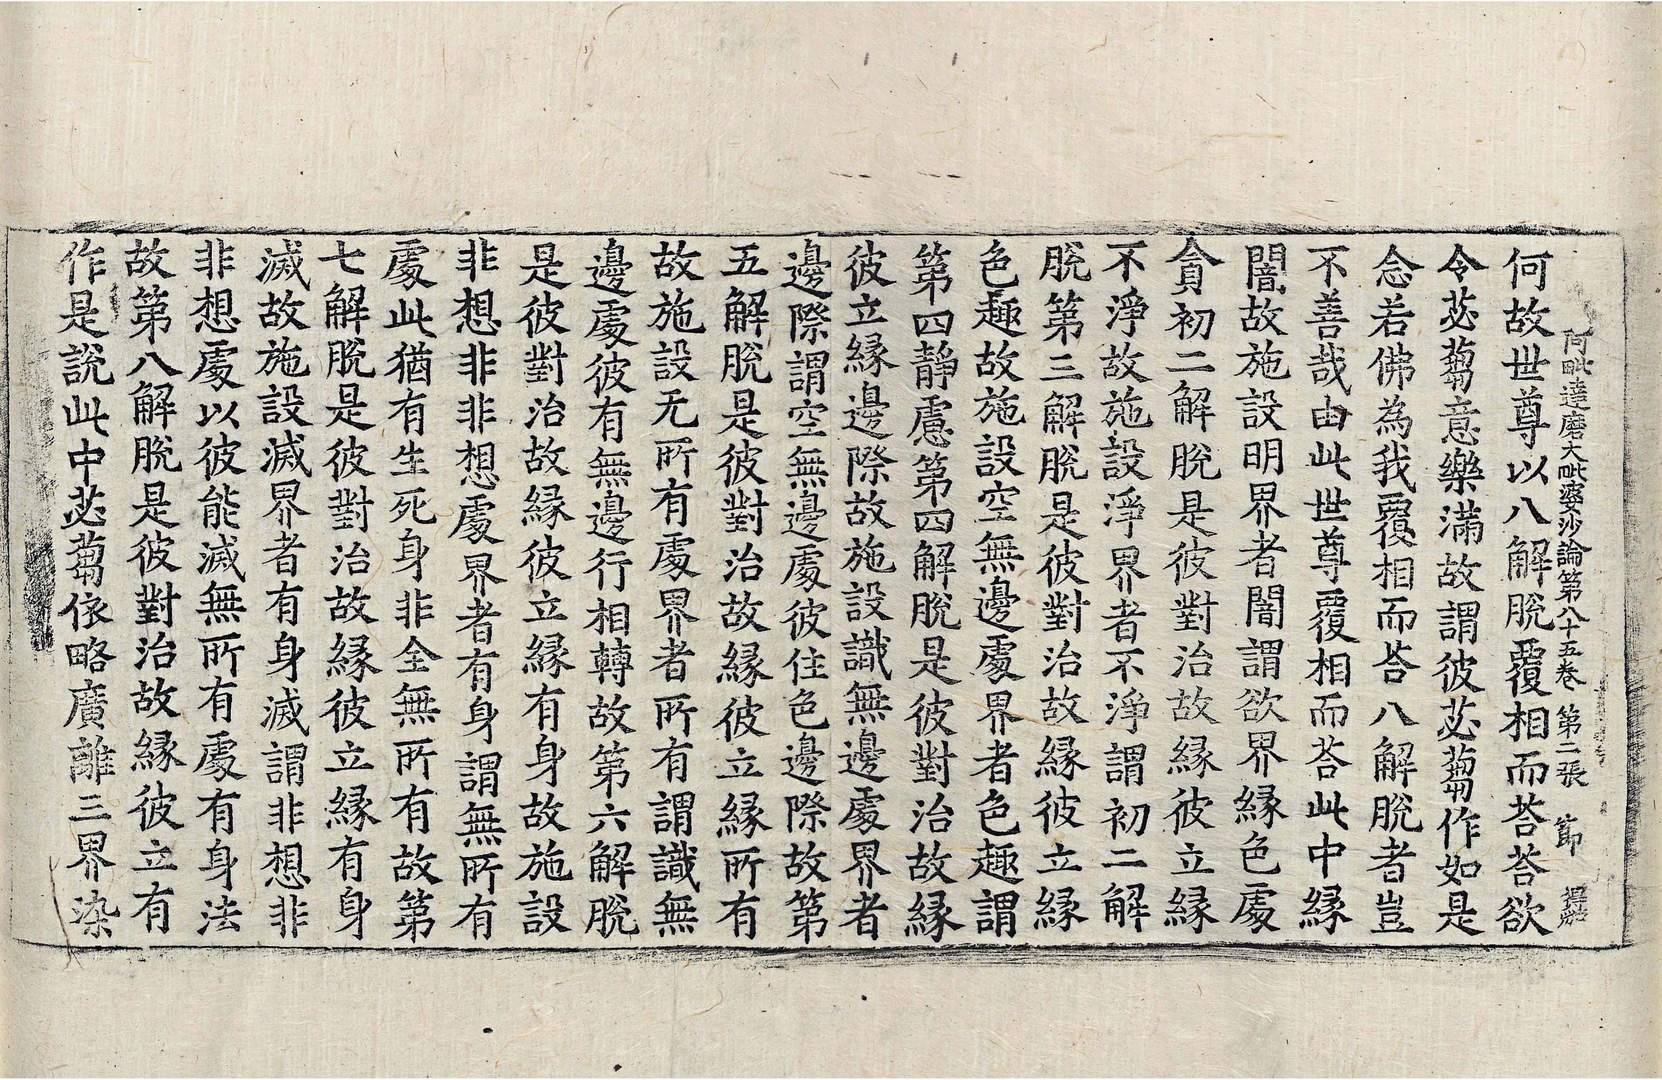 阿毗達磨大毗婆沙論第八十五卷 第二張 節
何故世尊以八解脫覆相而荅荅欲
令苾蒭意樂滿故謂彼苾蒭作如是
念若佛為我覆相而荅八解脫者豈
不善哉由此世尊覆相而荅此中緣
闇故施設明界者闇謂欲界緣色處
貪初二解脫是彼對治故緣彼立緣
不淨故施設淨界者不淨謂初二解
脫第三解脫是彼對治故緣彼立緣
色趣故施設空無邊處界者色趣謂
第四靜慮第四解脫是彼對治故緣
彼立緣邊際故施設識無邊處界者
邊際謂空無邊處彼住色邊際故第
五解脫是彼對治故緣彼立緣所有
故施設无所有處界者所有謂識無
邊處彼有無邊行相轉故第六解脫
是彼對治故緣彼立緣有身故施設
非想非非想處界者有身謂無所有
處此猶有生死身非全無所有故第
七解脫是彼對治故緣彼立緣有身
滅故施設滅界者有身滅謂非想非
非想處以彼能滅無所有處有身法
故第八解脫是彼對治故緣彼立有
作是說此中苾蒭依略廣離三界染